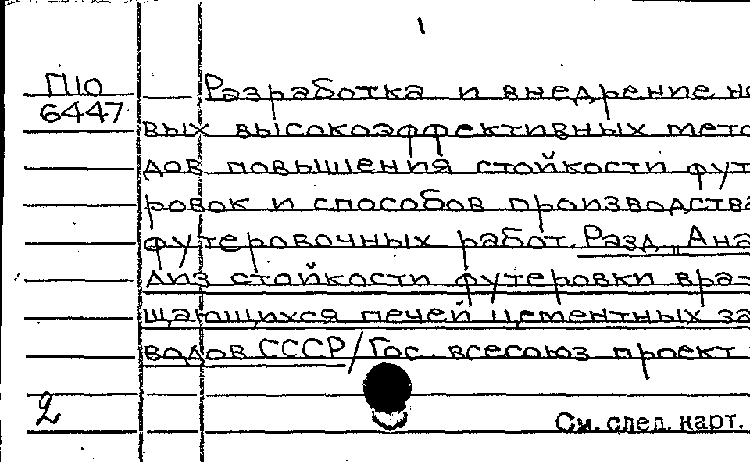 1
П10
6447
Разработка и внедрение но
вых высокоэффективных мето
дов повышения стойкости фут
ровок и способов производства
футеровочных работ. Разд. "Ана
лиз стойкости футеровки вра-
щающихся печей цементных за
водов СССР/Гос. всесоюз проект
2
См. след. карт.